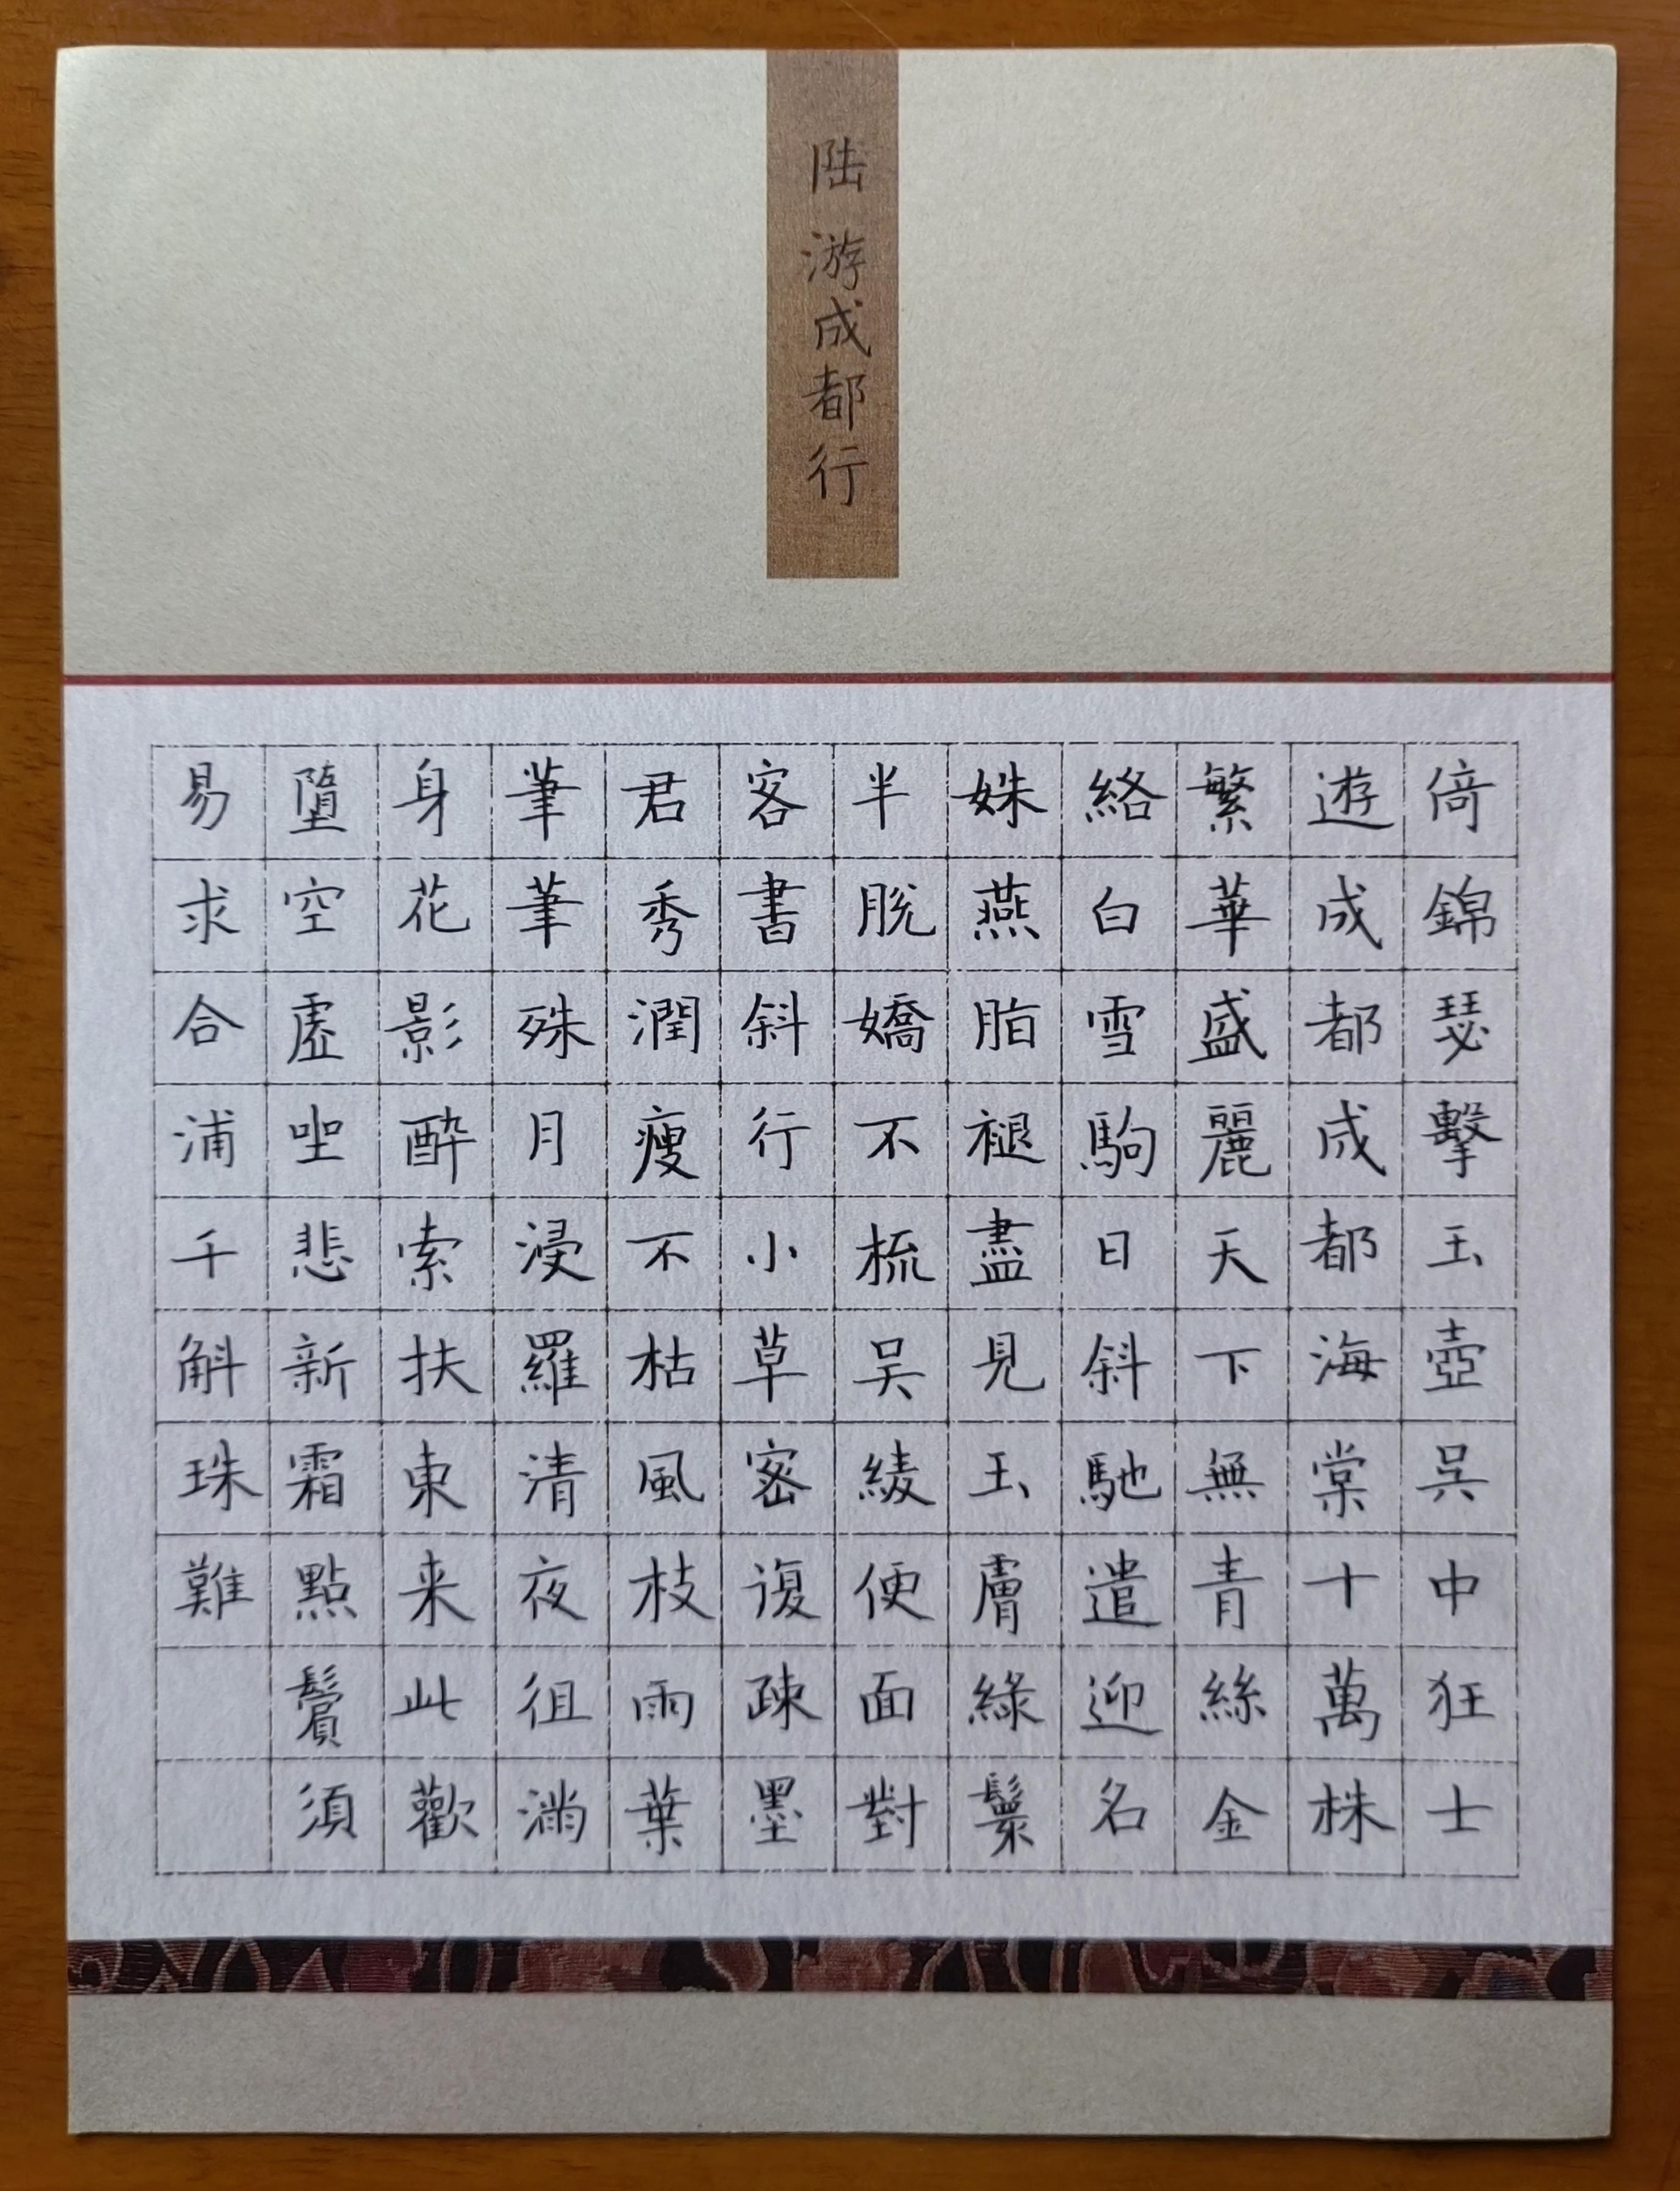 陆游成都行
倚錦瑟擊玉壺吴中狂士
遊成都成都海棠十萬株
繁華盛麗天下無青絲金
絡白雪駒日斜馳遣迎名
姝燕脂褪盡見玉膚綠鬟
半脫嬌不梳吴綾便面對
客書斜行小草密復疎墨
君秀潤瘦不枯風枝雨葉
筆筆殊月浸羅清夜徂滿
身花影醉索扶東来此歡
墮空虛坐悲新霜點鬢須
易求合浦千斛珠難